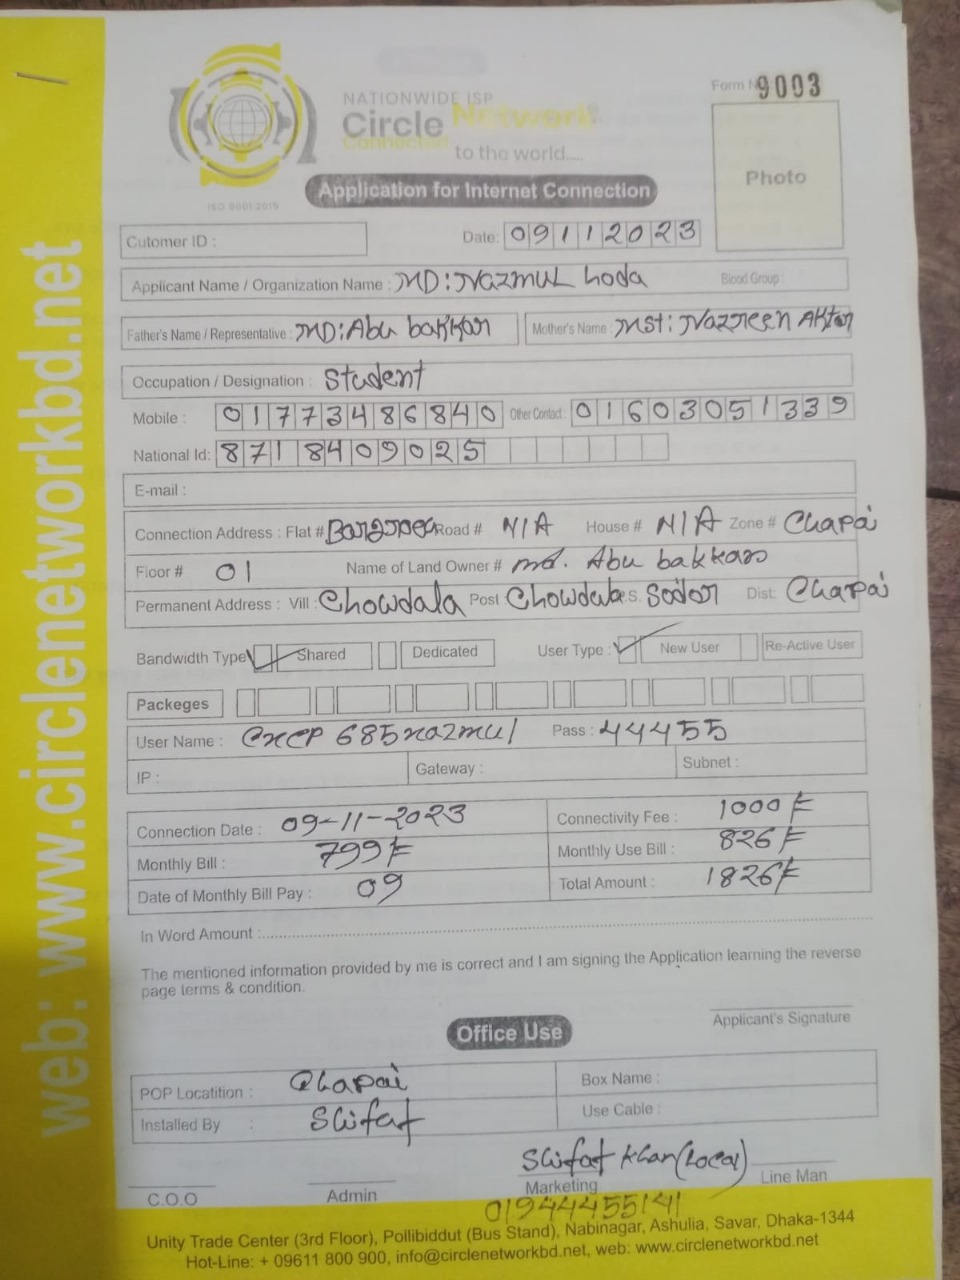 Form N 9003
NATIONWIDE ISP
Circle Network
Connected
to the world.....
Photo
ISO 9001:2015
Application for Internet Connection
Cutomer ID :
Date: 09112023
Applicant Name / Organization Name : MD: Nazmul hoda Blood Group :
Father's Name / Representative : MD: Abu bakkar Mother's Name : Mst: Nazneen Aktar
Occupation / Designation : Student
Mobile : 01773486840 Other Contact : 01603051339
National Id: 8718409025
E-mail :
Connection Address : Flat # Road # N/A House # N/A Zone # Chapai
Floor # 01 Name of Land Owner # md. Abu bakkar
Permanent Address : Vill : Chowdala Post Chowdala P.S. Sador Dist: Chapai
Bandwidth Type Shared Dedicated User Type : New User Re-Active User
Packeges
User Name : cncp 685nazmul Pass : 44455
IP : Gateway : Subnet :
Connection Date : 09-11-2023 Connectivity Fee : 1000/=
Monthly Bill : 799/= Monthly Use Bill : 826/=
Date of Monthly Bill Pay : 09 Total Amount : 1826/=
In Word Amount :
The mentioned information provided by me is correct and I am signing the Application learning the reverse
page terms & condition.
Applicant's Signature
Office Use
POP Locatition : Chapai Box Name :
Installed By : Shifat Use Cable :
Shifat Khan (Local)
C.O.O Admin Marketing Line Man
01944455141
Unity Trade Center (3rd Floor), Pollibiddut (Bus Stand), Nabinagar, Ashulia, Savar, Dhaka-1344
Hot-Line: + 09611 800 900, info@circlenetworkbd.net, web: www.circlenetworkbd.net
web: www.circlenetworkbd.net